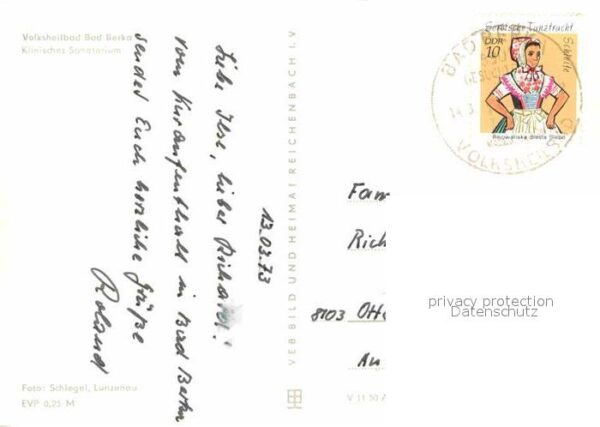 Volksheilbad Bad Berka
Klinisches Sanatorium
13.03.73
Liebe Ilse, lieber Richard!
vom Kuraufenthalt in Bad Berka
sendet Euch herzliche Grüße
Roland
Foto: Schlegel, Lunzenau
EVP 0,25 M
VEB BILD UND HEIMAT REICHENBACH I. V
V 11 50 A
Sorbische Tanztracht
DDR
10
Schleife
BAD BERKA
VOLKSHEILBAD
Fam
Rich
8103 Otte
An
privacy protection
Datenschutz